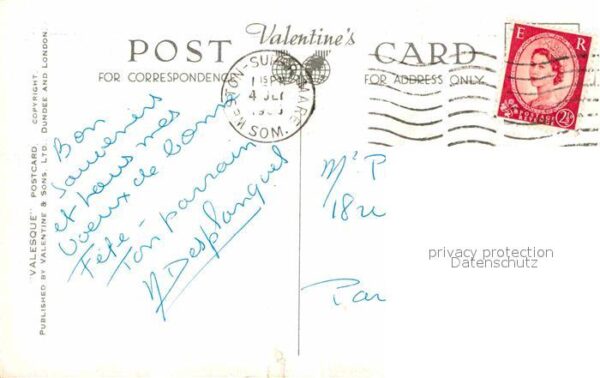 Valentine's
POST CARD
FOR CORRESPONDENCE FOR ADDRESS ONLY
WESTON-SUPER-MARE
4 JLY
SOM.
E R
2½
Bon
souvenirs
et tous mes
Voeux de bonne
Fête -
Ton parrain
Desplanques
"VALESQUE" POSTCARD. COPYRIGHT.
PUBLISHED BY VALENTINE & SONS. LTD. DUNDEE AND LONDON.
Mr P
18
Par
privacy protection
Datenschutz